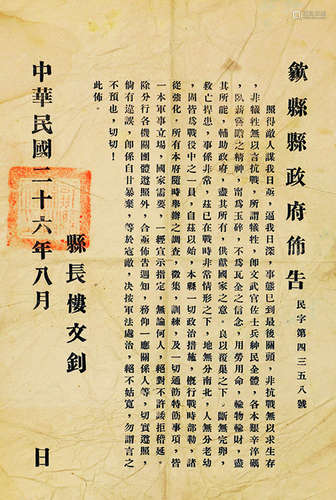 歙縣縣政府佈告 民字第四三五八號
照得敵人謀我日亟,逼我日深,事態已到最後關頭,非抗戰無以求生存
,非犧牲無以言抗戰,所謂犧牲,即文武官佐士兵紳民全體,各本艱辛淬礪
,臥薪嘗膽之精神,甯爲玉碎,不爲瓦全之信念,用勞用命,輸物輸財,盡
其所能,輔助政府,盡其所有,供獻國家之意,良以覆巢之下,斷無完卵,
救亡捍患,事係非常,茲已在戰時非常情形之下,地無分南北,人無分老幼
,固皆爲戰後中之一員,自茲以始,本縣一切政治措施,概行戰時部勒,諸
從強化,所有本府隨時舉辦之調查,徵集,訓練,及一切通飭特飭事項,皆
一本軍事立場,國家需要,一經宣示指定,無論何人,絕對不許諉拒稽延,
除分行各機關團體遵照外,合亟佈告週知,務仰一應關係人等,切實遵照,
倘有違誤,卽係自甘暴棄,等於寇敵,决按軍法處治,絕不姑寬,勿謂言之
不預也,切切!
此佈。
縣長樓文釗
中華民國二十六年八月 日